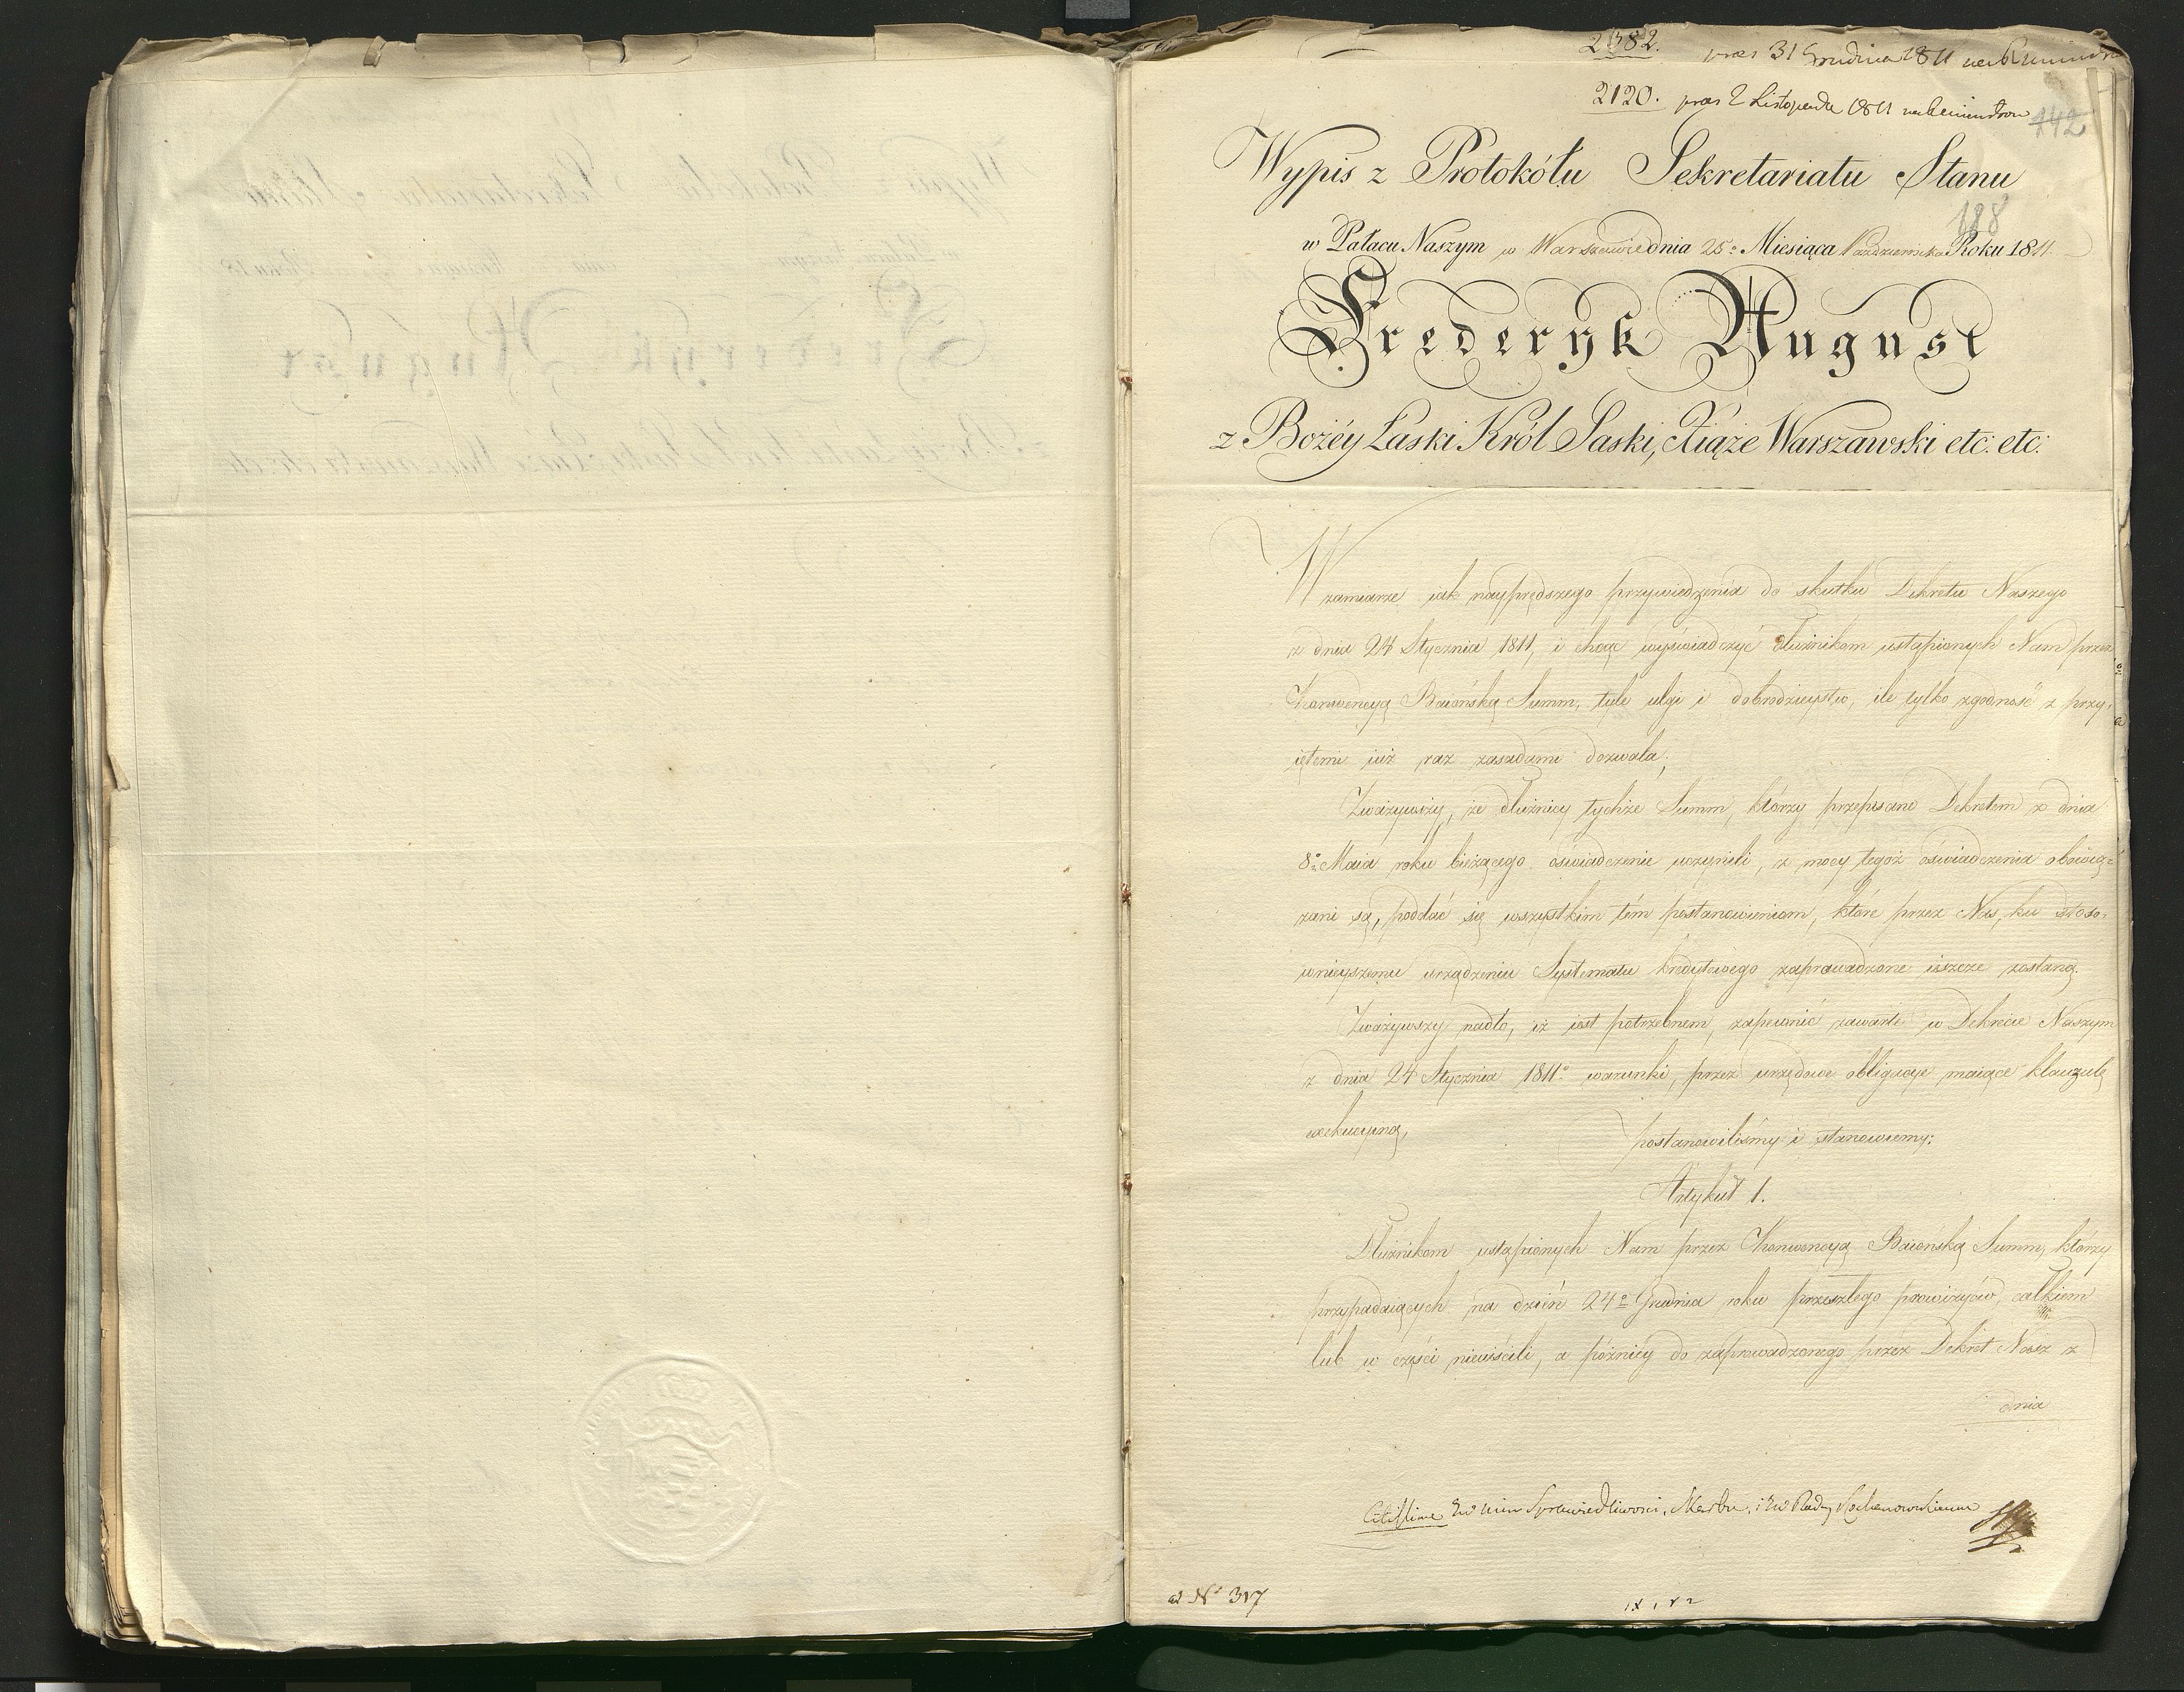 2382. præs 31 Grudnia 1811
2120. præs 2 Listopada 1811
142
Wypis z Protokółu Sekretariatu Stanu
188
w Pałacu Naszym w Warszawie dnia 25º Miesiąca Października Roku 1811.
Frederyk August
z Bożéy Łaski Król Saski, Xiąże Warszawski etc: etc:
W zamiarze iak nayprędszego przywiedzenia do skutku Dekretu Naszego
z dnia 24 Stycznia 1811, i chcąc wyświadczyć dłużnikom ustąpionych Nam przez
Konwencyą Baiońską Summ, tyle ulgi i dobrodzieystw, ile tylko zgodność z przy-
iętemi iuż raz zasadami dozwala;
Zważywszy, że dłużnicy tychże Summ, którzy przepisane Dekretem z dnia
8º Maia roku bieżącego oświadczenie uczynili, z mocy tegoż oświadczenia obowią=
zani są, poddać się wszystkim tém postanowieniom, które przez Nas, ku stoso-
wnieyszemu urządzeniu Systematu kredytowego zaprowadzone ieszcze zostaną.
Zważywszy nadto, iż iest potrzebnem, zapewnić zawarte w Dekrecie Naszym
z dnia 24 Stycznia 1811º warunki, przez urzędowe obligacye maiące klauzulę
exekucyiną,
postanowiliśmy i stanowiemy:
Artykuł 1.
Dłużnikom ustąpionych Nam przez Konwencyą Baiońską Summ, którzy
przypadaiących na dzień 24º Grudnia roku przeszłego prowizyów, całkiem
lub w części nieuiścili, a późniéy do zaprowadzonego przez Dekret Nasz z
dnia
Citissime do Min Sprawiedliwości, Skarbu, i do Rady Kochanowskiemu
ad Nº 317